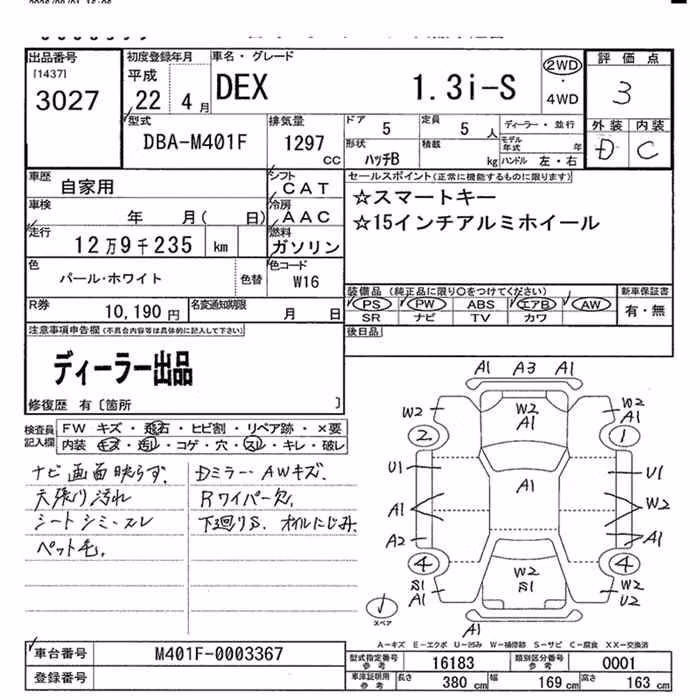 出品番号 初度登録年月 車名・グレード 評価点
[1437] 平成 2WD
3027 22 4月 DEX 1.3i-S ・ 3
4WD
型式 排気量 ドア 5 定員 5人 ディーラー・並行 外装 内装
DBA-M401F 1297 CC 形状 ハッチB 積載 kg モデル年式 年 D C
ハンドル 左・右
車歴 自家用 シフト CAT セールスポイント(正常に機能するものに限ります)
車検 年 月( 日) 冷房 AAC ☆スマートキー
走行 12万9千235 km 燃料 ガソリン ☆15インチアルミホイール
色 パール・ホワイト 色替 色コード W16
装備品(純正品に限り○をつけてください) 新車保証書
R券 10,190円 名変通知期限 月 日 PS PW ABS エアB AW 有・無
SR ナビ TV カワ
注意事項申告欄(不具合内容等は具体的に記入して下さい) 後日品
ディーラー出品
修復歴 有〔箇所 〕
検査員記入欄 FW キズ・飛石・ヒビ割・リペア跡・×要
内装 キズ・汚レ・コゲ・穴・スレ・キレ・破レ
ナビ画面映らず. Dミラー・AWキズ.
天張り汚れ Rワイパー欠.
シートシミ・スレ 下廻りS. オイルにじみ.
ペット毛.
A1 A3 A1
W2 W2 A1 W2 A1
2 1
U1 A1 U1
A1 W2
A2 A1
4 4
S1 A1 W2 S1 W2 U2
スペア A1
A-キズ E-エクボ U-凹み W-補修跡 S-サビ C-腐食 XX-交換済
車台番号 M401F-0003367 型式指定番号 参考 16183 類別区分番号 参考 0001
登録番号 車庫証明用 参考 長さ 380cm 幅 169cm 高さ 163cm